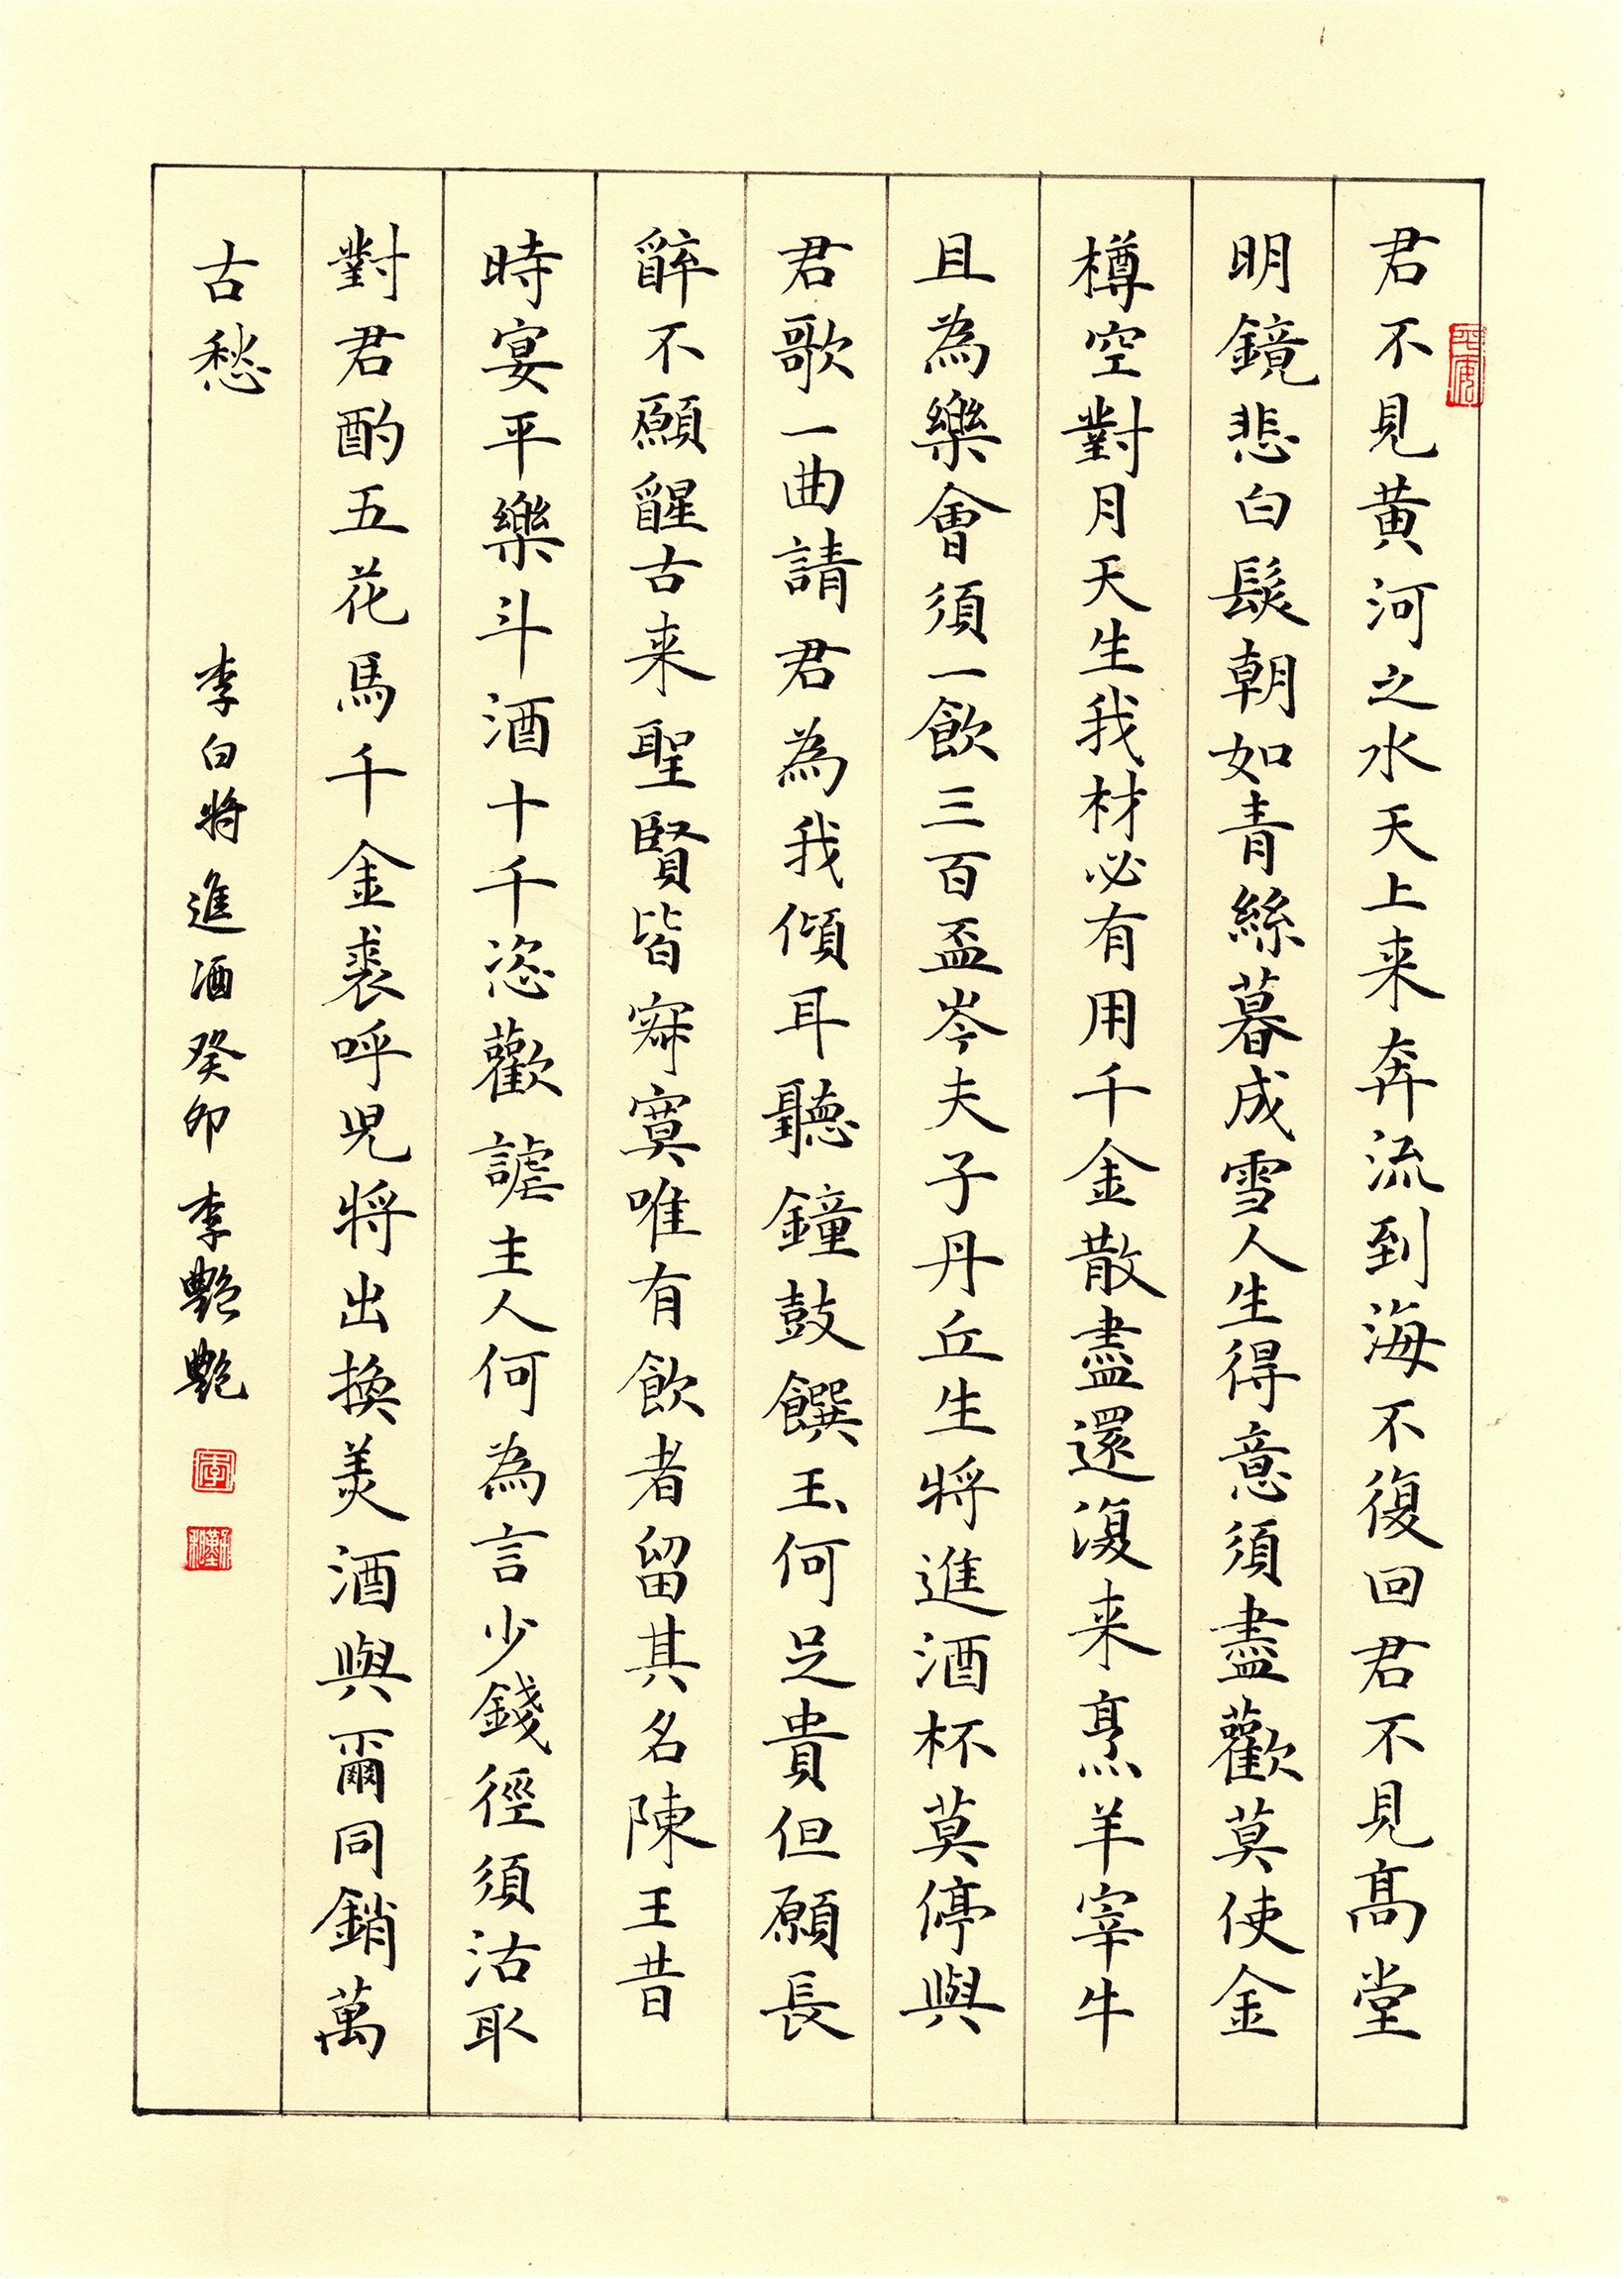 君不見黄河之水天上来奔流到海不復回君不見髙堂
明鏡悲白髮朝如青絲暮成雪人生得意須盡歡莫使金
樽空對月天生我材必有用千金散盡還復来烹羊宰牛
且為樂會須一飲三百盃岑夫子丹丘生將進酒杯莫停與
君歌一曲請君為我傾耳聽鐘鼓饌玉何足貴但願長
醉不願醒古来聖賢皆寂寞唯有飲者留其名陳王昔
時宴平樂斗酒十千恣歡謔主人何為言少錢徑須沽取
對君酌五花馬千金裘呼児將出換美酒與爾同銷萬
古愁
李白將進酒癸卯李艶艶